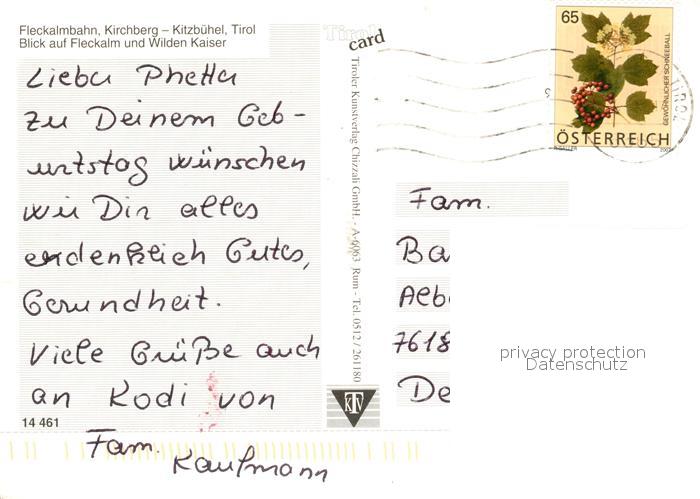 Fleckalmbahn, Kirchberg – Kitzbühel, Tirol
Blick auf Fleckalm und Wilden Kaiser
Lieber
zu Deinem Geb-
urtstag wünschen
wir Dir alles
erdenklich Gutes,
Gesundheit.
Viele Grüße auch
an Kodi von
Fam.
Kaufmann
14 461
Tirol
card
Tiroler Kunstverlag Chizzali GmbH. - A-6063 Rum - Tel. 0512 / 261180
KTV
65
GEWÖHNLICHER SCHNEEBALL
ÖSTERREICH
TIROL
Fam.
Ba
Aeb
7618
De
privacy protection
Datenschutz